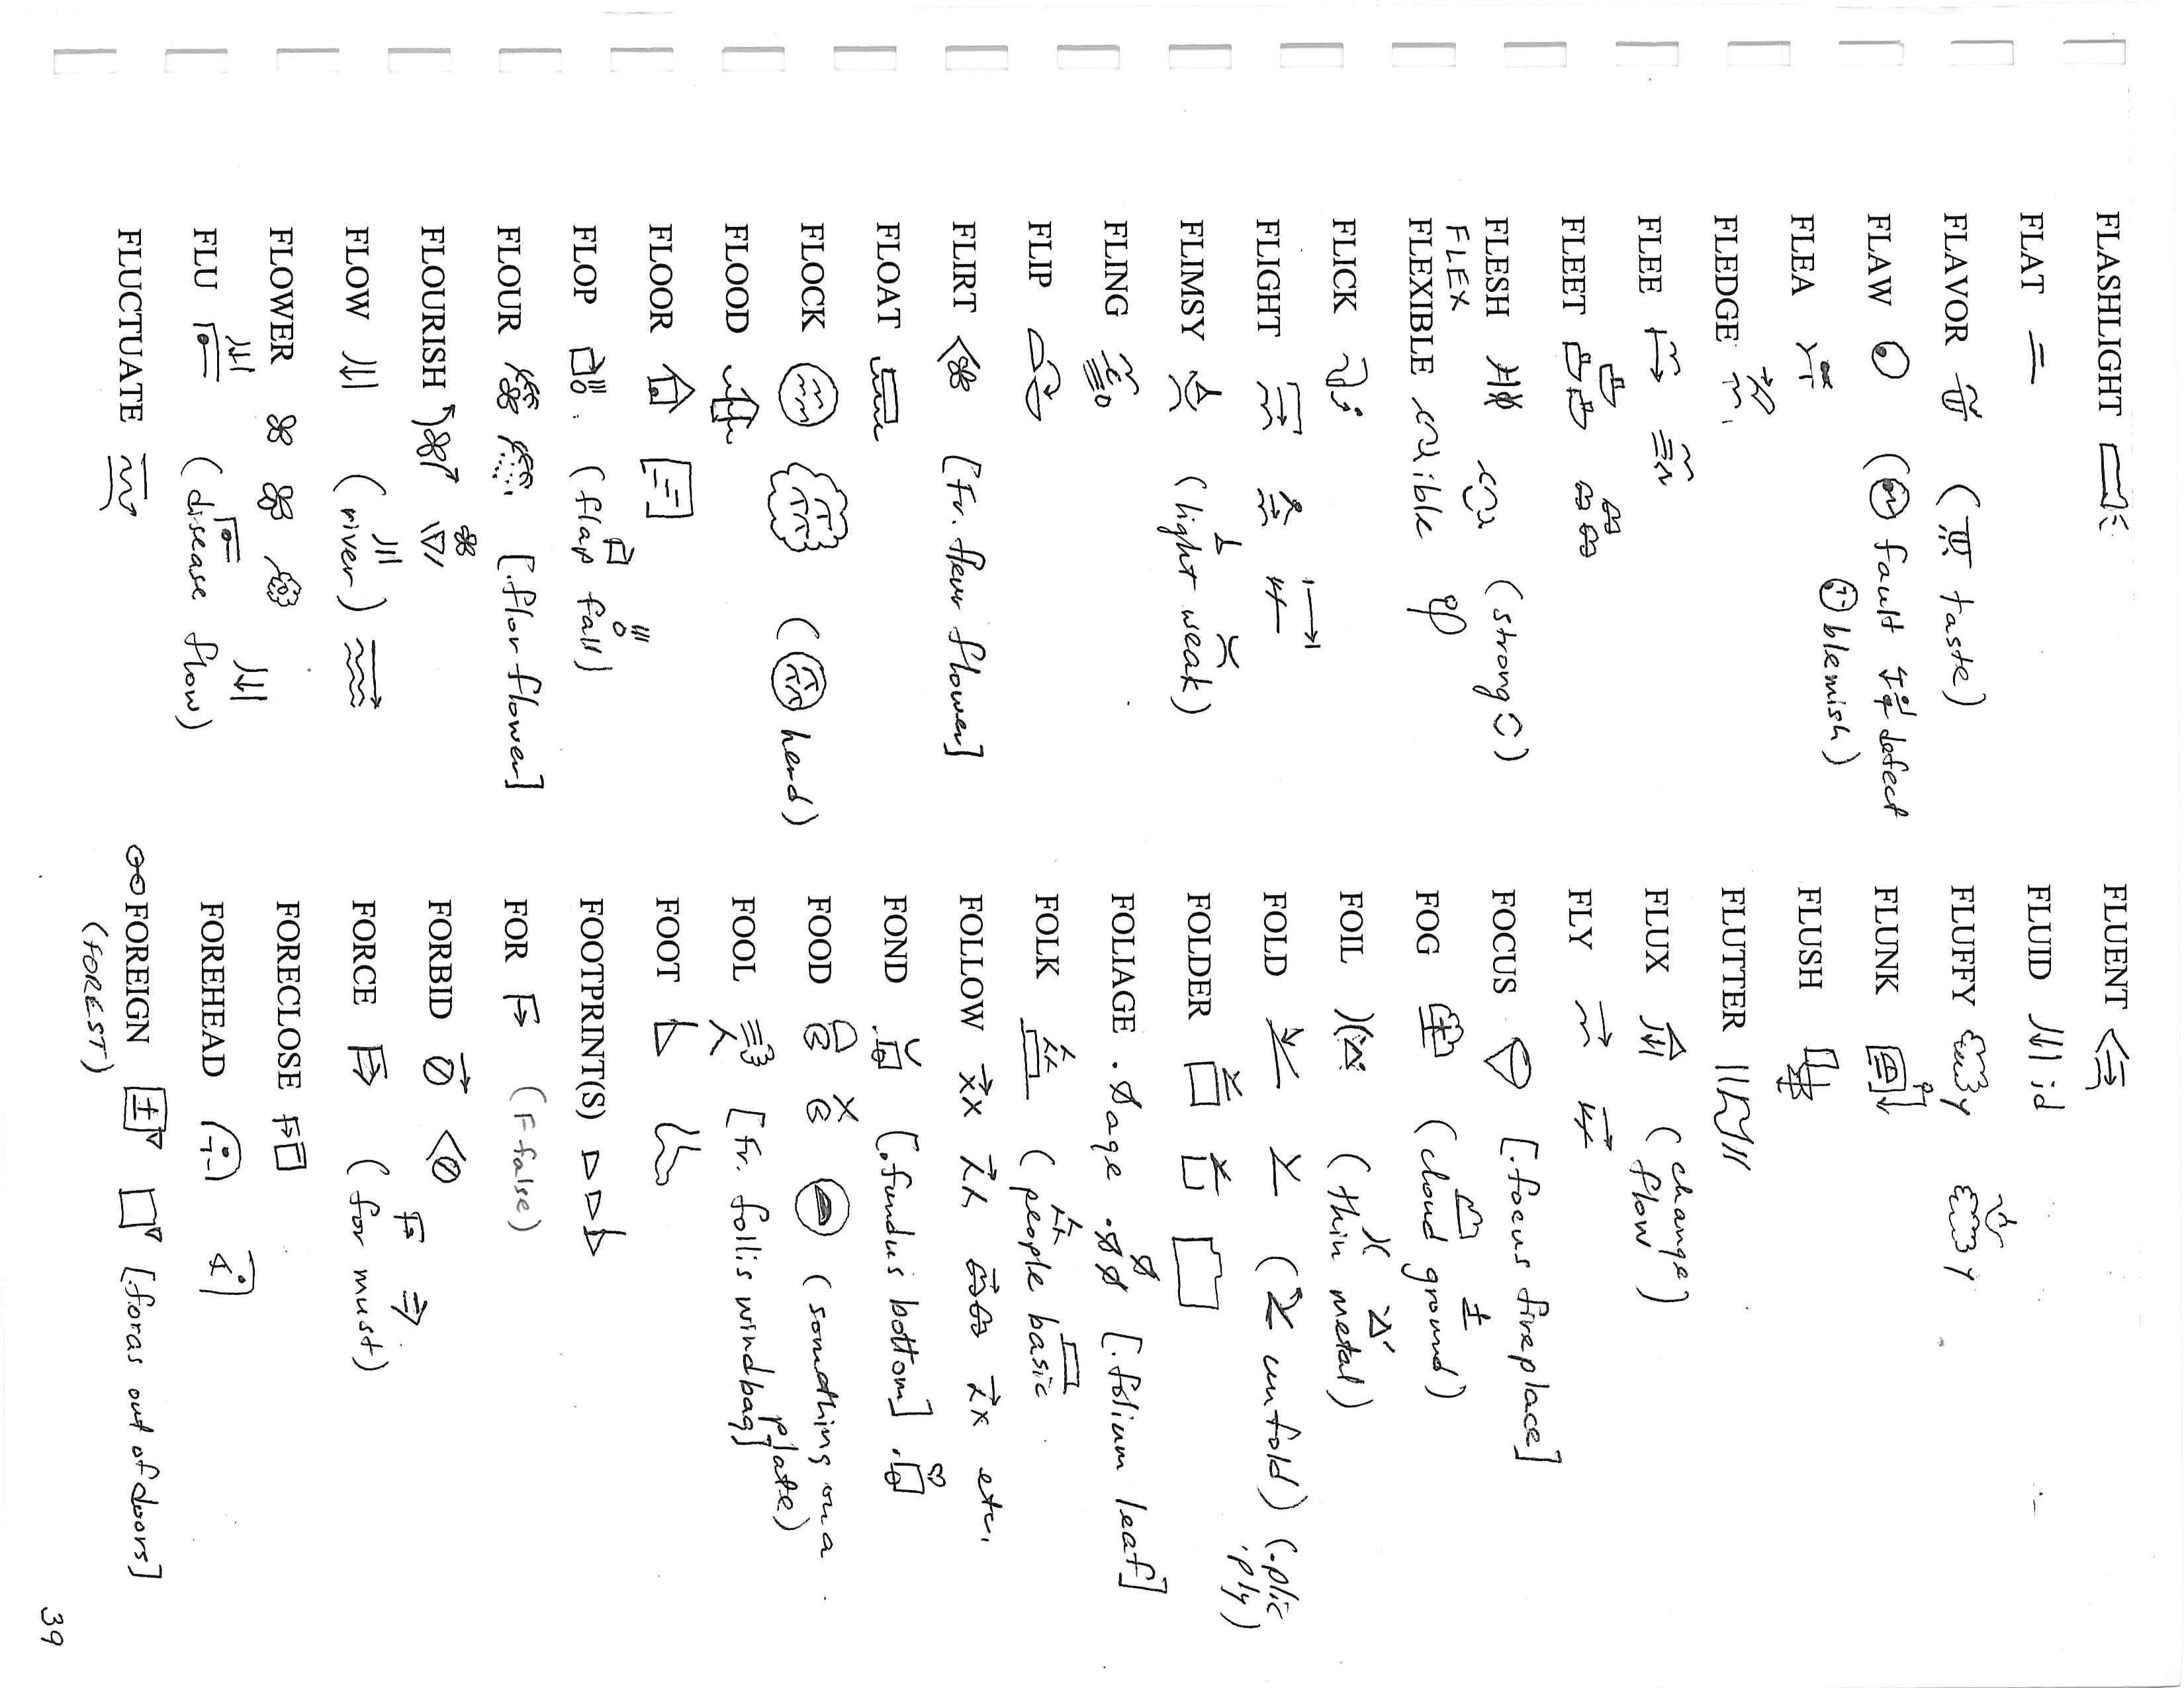 FLASHLIGHT
FLAT
FLAVOR ( taste)
FLAW ( fault defect
blemish)
FLEA
FLEDGE
FLEE
FLEET
FLESH (strong )
FLEX
FLEXIBLE ible
FLICK
FLIGHT
FLIMSY (light weak)
FLING
FLIP
FLIRT [Fr. fleur flower]
FLOAT
FLOCK ( herd)
FLOOD
FLOOR
FLOP (flap fall)
FLOUR [.flor flower]
FLOURISH
FLOW (river)
FLOWER
FLU (disease flow)
FLUCTUATE
FLUENT
FLUID id
FLUFFY y y
FLUNK
FLUSH
FLUTTER
FLUX (change
flow)
FLY
FOCUS [.focus fireplace]
FOG (cloud ground)
FOIL (thin metal)
FOLD ( unfold) (.plic
.ply)
FOLDER
FOLIAGE . age . [.folium leaf]
FOLK (people basic
FOLLOW etc.
FOND [.fundus bottom]
FOOD (something on a
plate)
FOOL [Fr. follis windbag]
FOOT
FOOTPRINT(S)
FOR (F false)
FORBID
FORCE (for must)
FORECLOSE
FOREHEAD
FOREIGN [foras out of doors]
(FOREST)
39